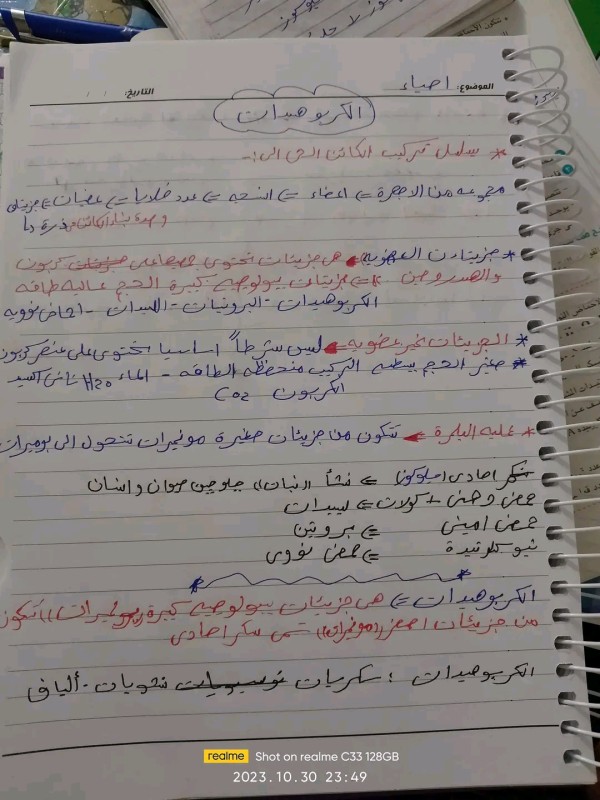 الموضوع: احياء
التاريخ: / /
الكربوهيدات
* سلسل تركيب الكائن الحي الى:-
مجموعه من الاجهزة = اعضاء = انسجه = عدد خلايا = عضيات = جزيئات
وحدة بناء الكائن ذرة
* جزيئات العضويه هي جزيئات تحتوي جميعا على كربون
والهيدروجين = جزيئات بيولوجيه كبيرة الحجم عاليه طاقه
الكربوهيدات - البروتيات - الليبدات - احماض نوويه
* الجزيئات غير عضويه ليس شرطاً اساسيا تحتوي على عنصر كربون
* صغير الحجم بسطه التركيب منخفظه الطاقه - الماء H2O ثاني اكسيد
الكربون CO2
* عمليه البلمرة تتكون من جزيئات صغيرة مونميرات تتحول الى بوميرات
سكر احادي (جلوكوز) = نشأ ((نبات)) جلوجين حيوان وانسان
حمض دهني + كولات = ليبدات
حمض اميني = بروتين
نيوكلوتيدة = حمض نووي
الكربوهيدات = هي جزيئات بيولوجيه كبيرة ((بوليمرات)) تتكون
من جزيئات اصغر ((مونمرات)) تسمى سكر احادي
الكربوهيدات : سكريات نشويات - ألياف
realme Shot on realme C33 128GB
2023.10.30 23:49